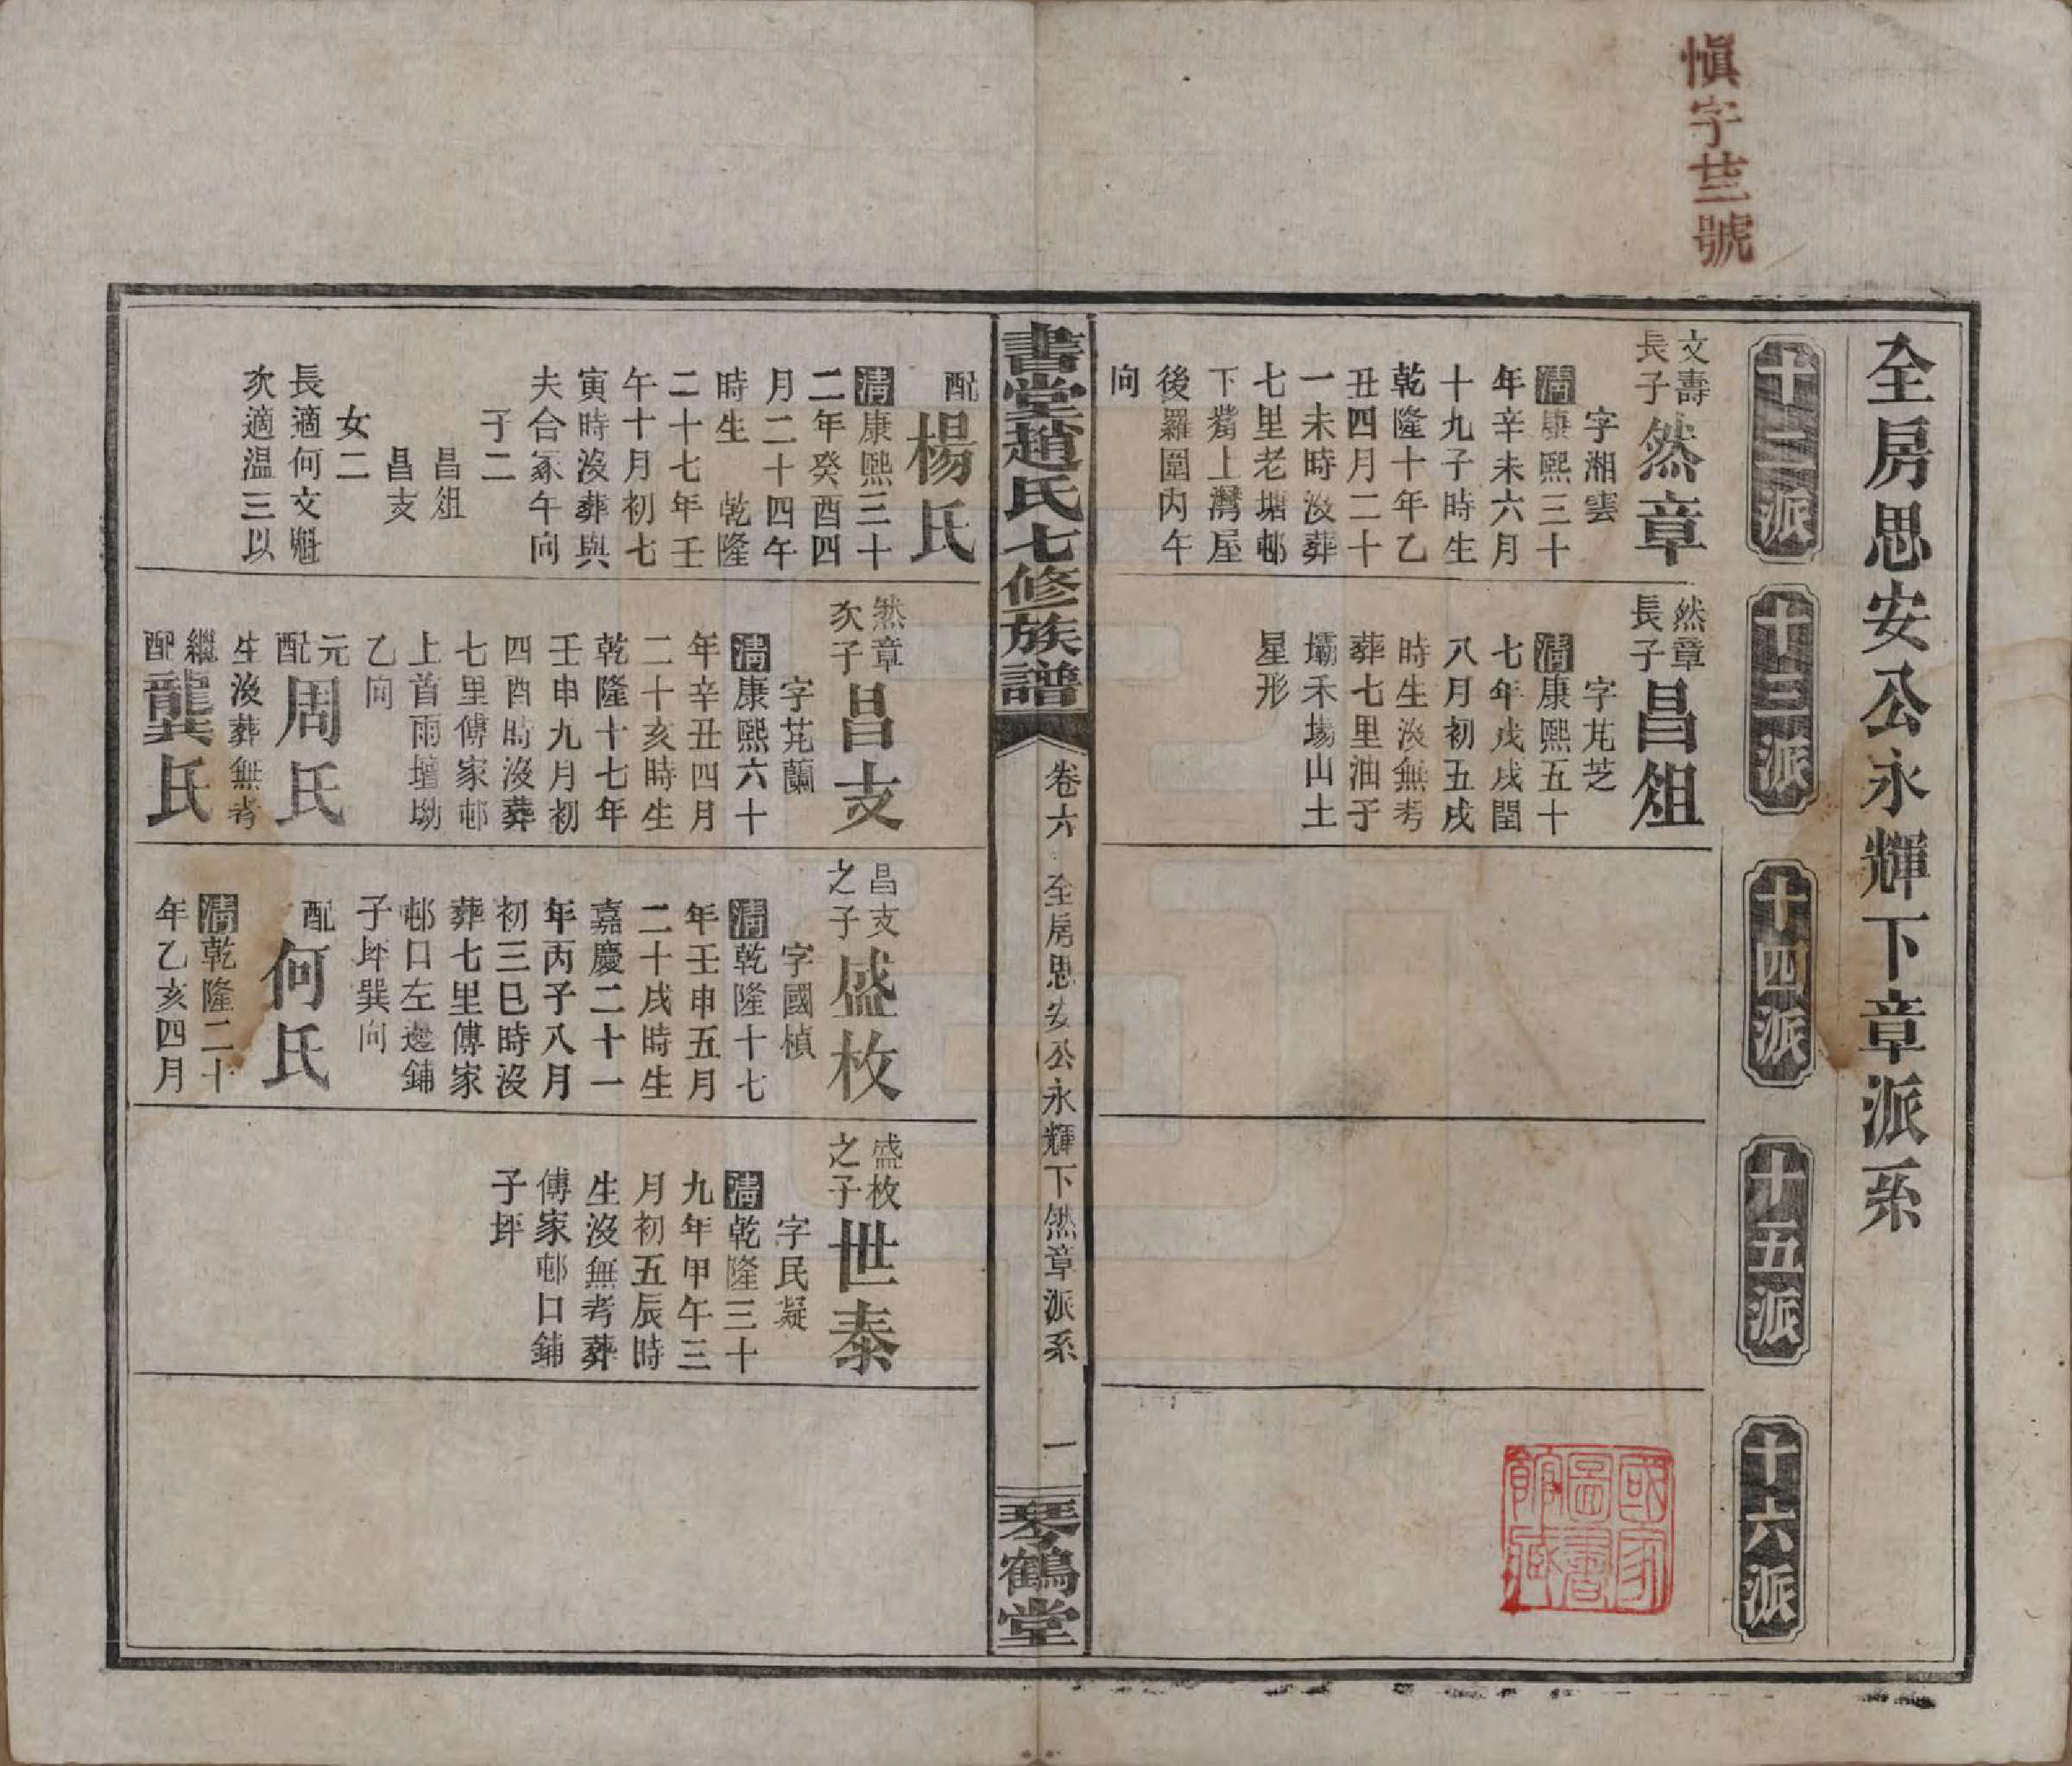 慎字廿三號
全房思安公永輝下章派系
十二派
十三派
十四派
十五派
十六派
文壽
長子
然章
字湘雲
清康熙三十
年辛未六月
十九子時生
乾隆十年乙
丑四月二十
一未時沒葬
七里老塘邨
下灣上灣屋
後羅圍内午
向
然章
長子
昌俎
字芃芝
清康熙五十
七年戊戌閏
八月初五戌
時生沒無考
葬七里油子
壩禾場山土
星形
國家圖書館藏
書堂趙氏七修族譜
卷六
全房思安公永輝下然章派系
一
琴鶴堂
配
楊氏
清康熙三十
二年癸酉四
月二十四午
時生 乾隆
二十七年壬
午十月初七
寅時沒葬與
夫合冢午向
子二
昌俎
昌支
女二
長適何文魁
次適温三以
然章
次子
昌支
字芃蘭
清康熙六十
年辛丑四月
二十亥時生
乾隆十七年
壬申九月初
四酉時沒葬
七里傅家邨
上首雨壇坳
乙向
元
配
周氏
生沒葬無考
繼
配
龔氏
昌支
之子
盛枚
字國楨
清乾隆十七
年壬申五月
二十戌時生
嘉慶二十一
年丙子八月
初三巳時沒
葬七里傅家
邨口左邊鋪
子坪巽向
配
何氏
清乾隆二十
年乙亥四月
盛枚
之子
世泰
字民凝
清乾隆三十
九年甲午三
月初五辰時
生沒無考葬
傅家邨口鋪
子坪